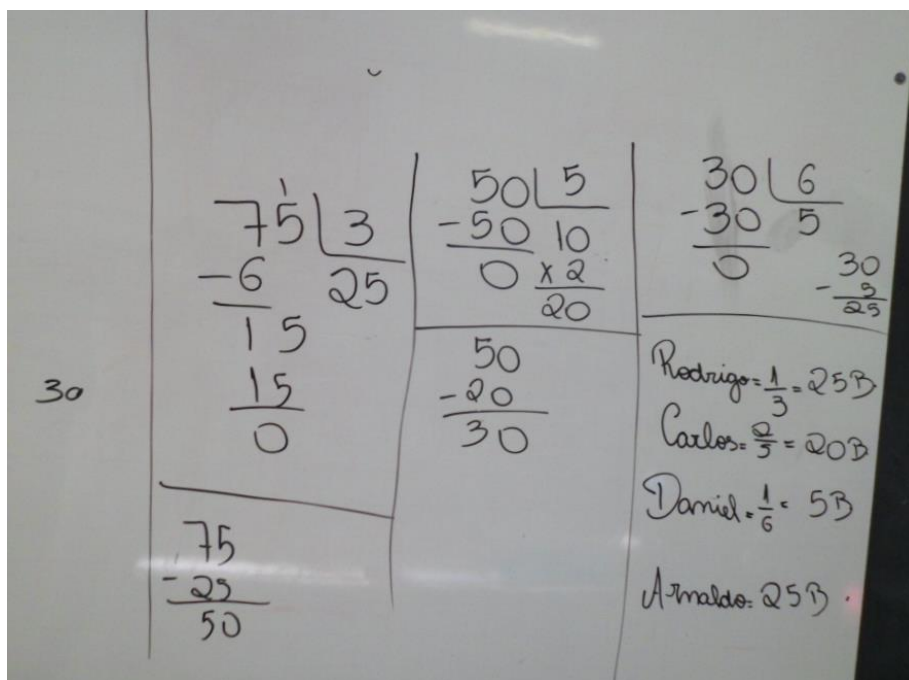 30
1
75 3
-6 25
15
15
0
75
-25
50
50 5
-50 10
0 x2
20
50
-20
30
30 6
-30 5
0
30
-5
25
Rodrigo=1/3=25B
Carlos=2/5=20B
Daniel=1/6=5B
Arnaldo=25B